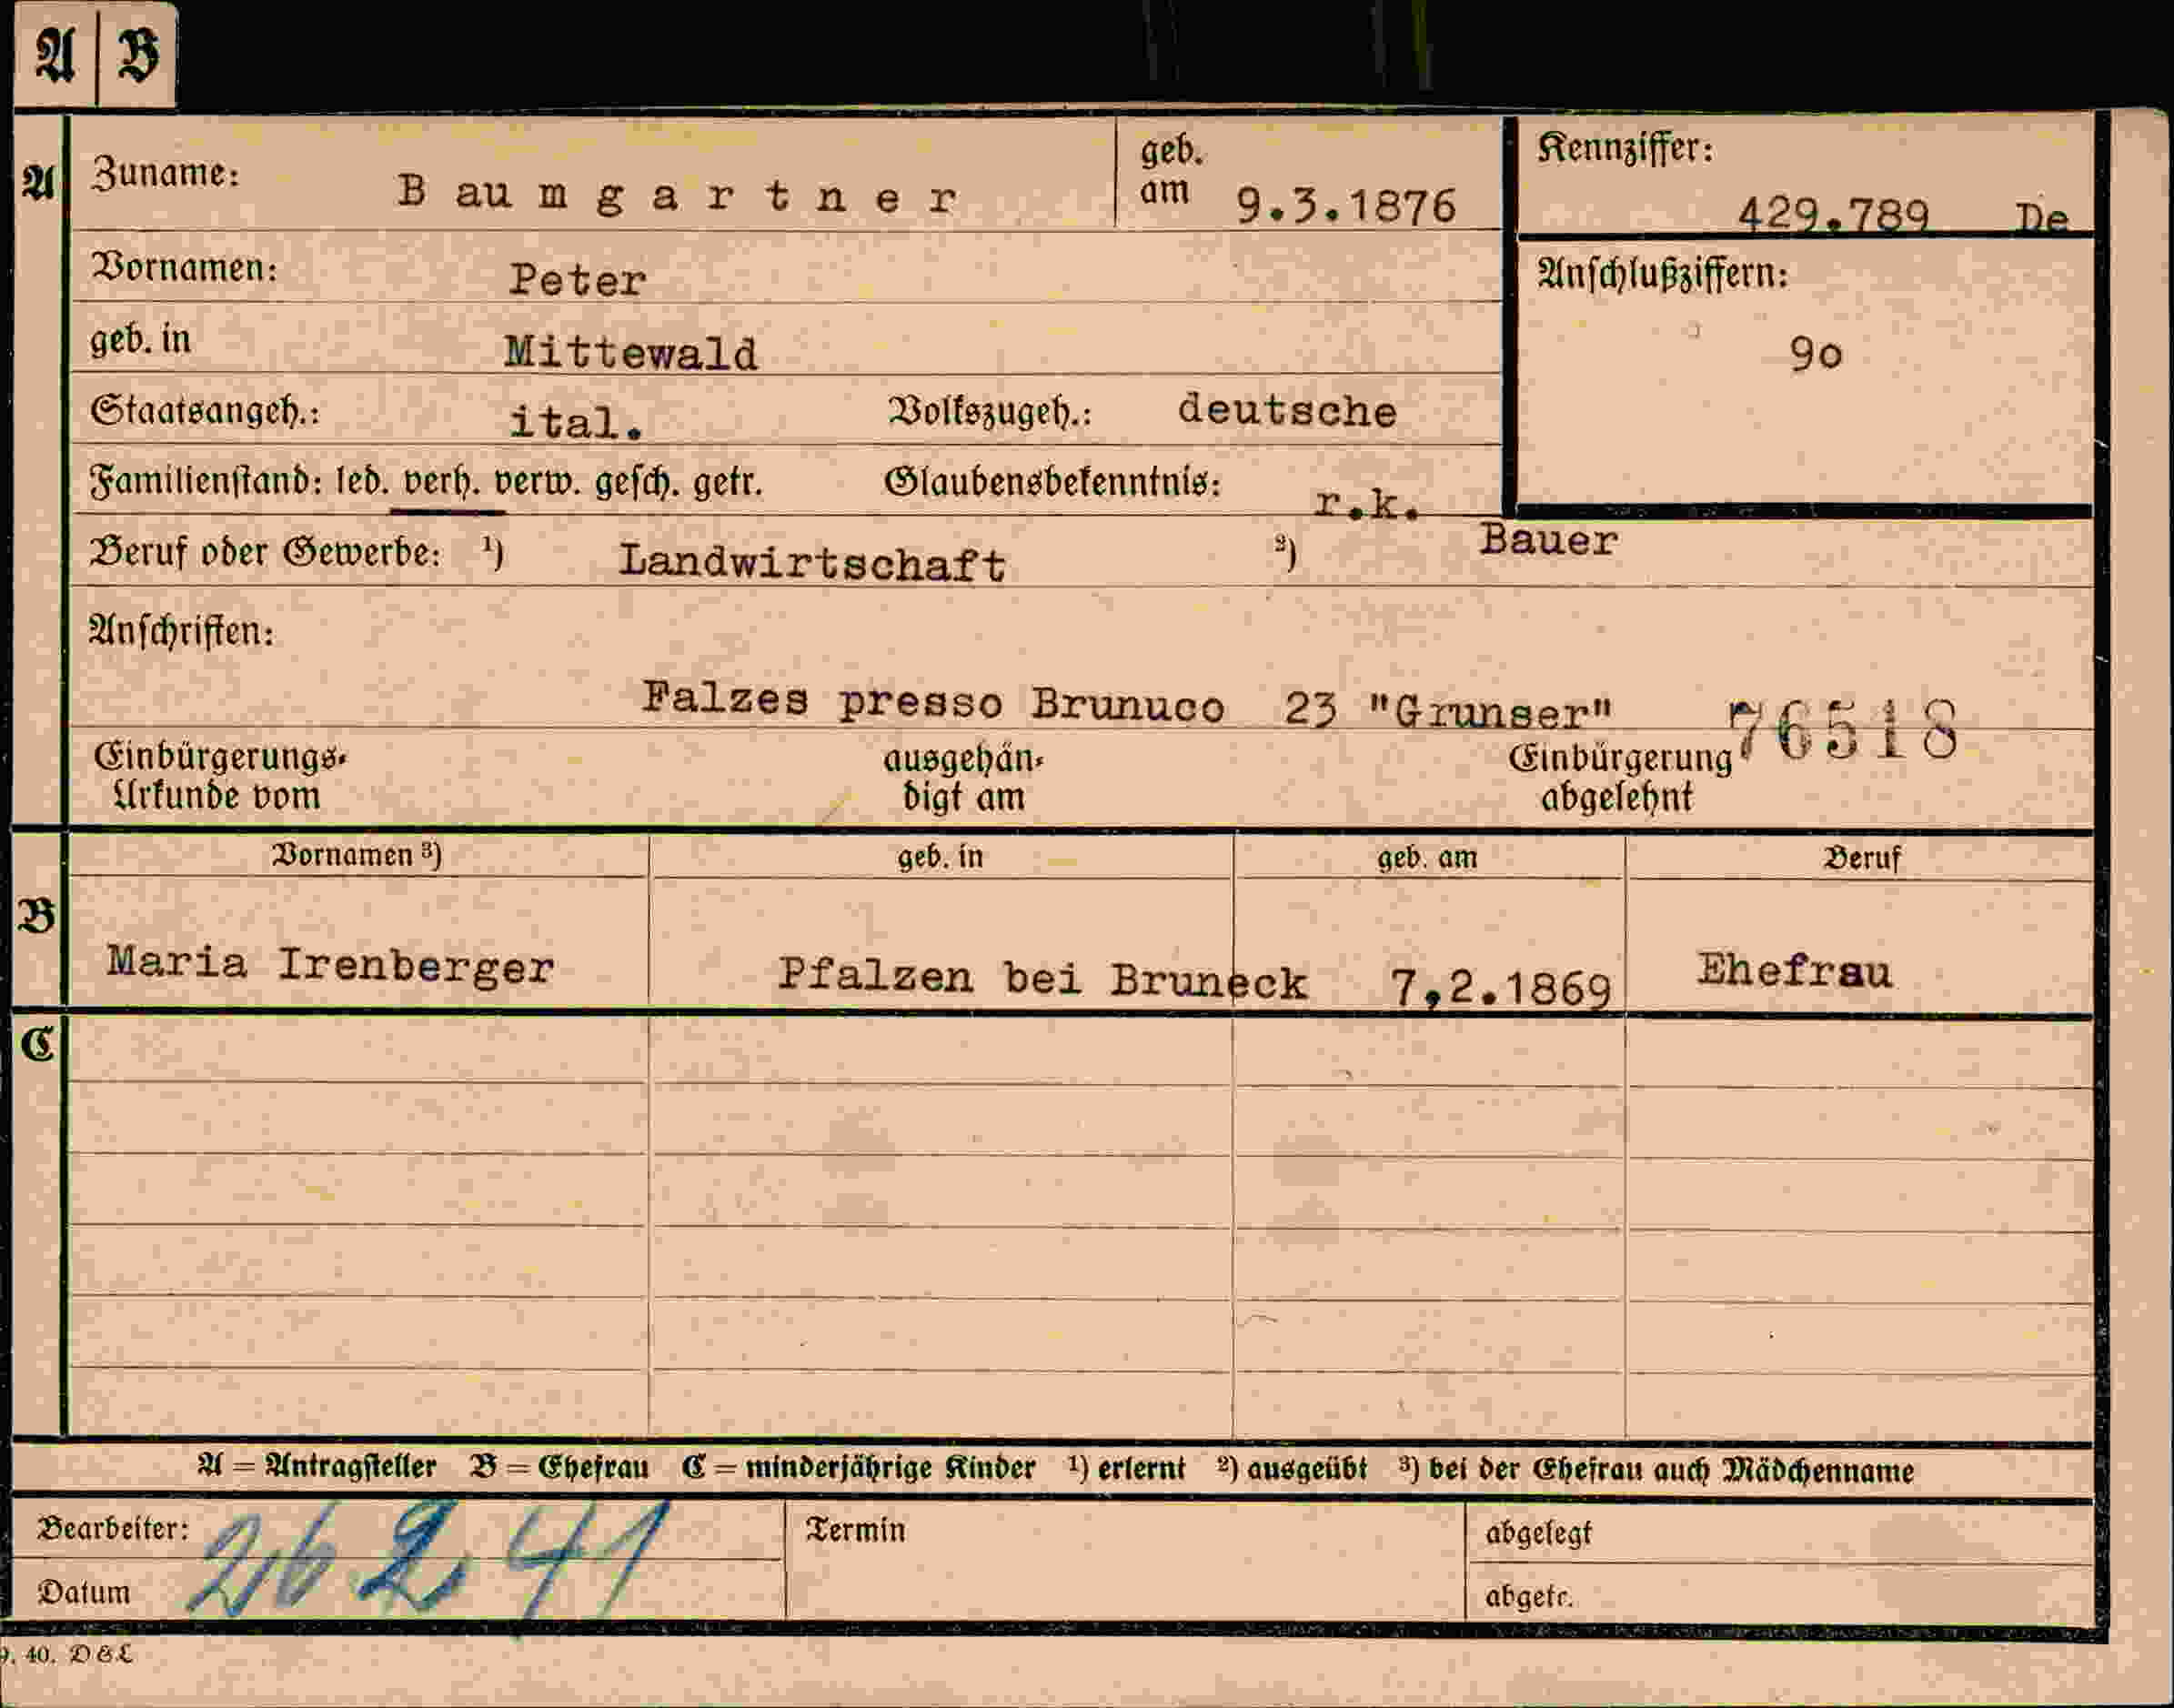 A B
A Zuname: Baumgartner geb. am 9.3.1876 Kennziffer: 429.789 De
Vornamen: Peter Anschlußziffern:
geb. in Mittewald 9o
Staatsangeh.: ital. Volkszugeh.: deutsche
Familienstand: led. verh. verw. gesch. getr. Glaubensbekenntnis: r.k.
Beruf oder Gewerbe: ¹) Landwirtschaft ²) Bauer
Anschriften:
Falzes presso Brunuco 23 "Grunser" 76518
Einbürgerungs- ausgehän- Einbürgerung
Urkunde vom digt am abgelehnt
Vornamen ³) geb. in geb. am Beruf
B
Maria Irenberger Pfalzen bei Bruneck 7,2.1869 Ehefrau
C
A = Antragsteller B = Ehefrau C = minderjährige Kinder ¹) erlernt ²) ausgeübt ³) bei der Ehefrau auch Mädchenname
Bearbeiter: 26 2. 41 Termin abgelegt
Datum abgetr.
9. 40. D&L